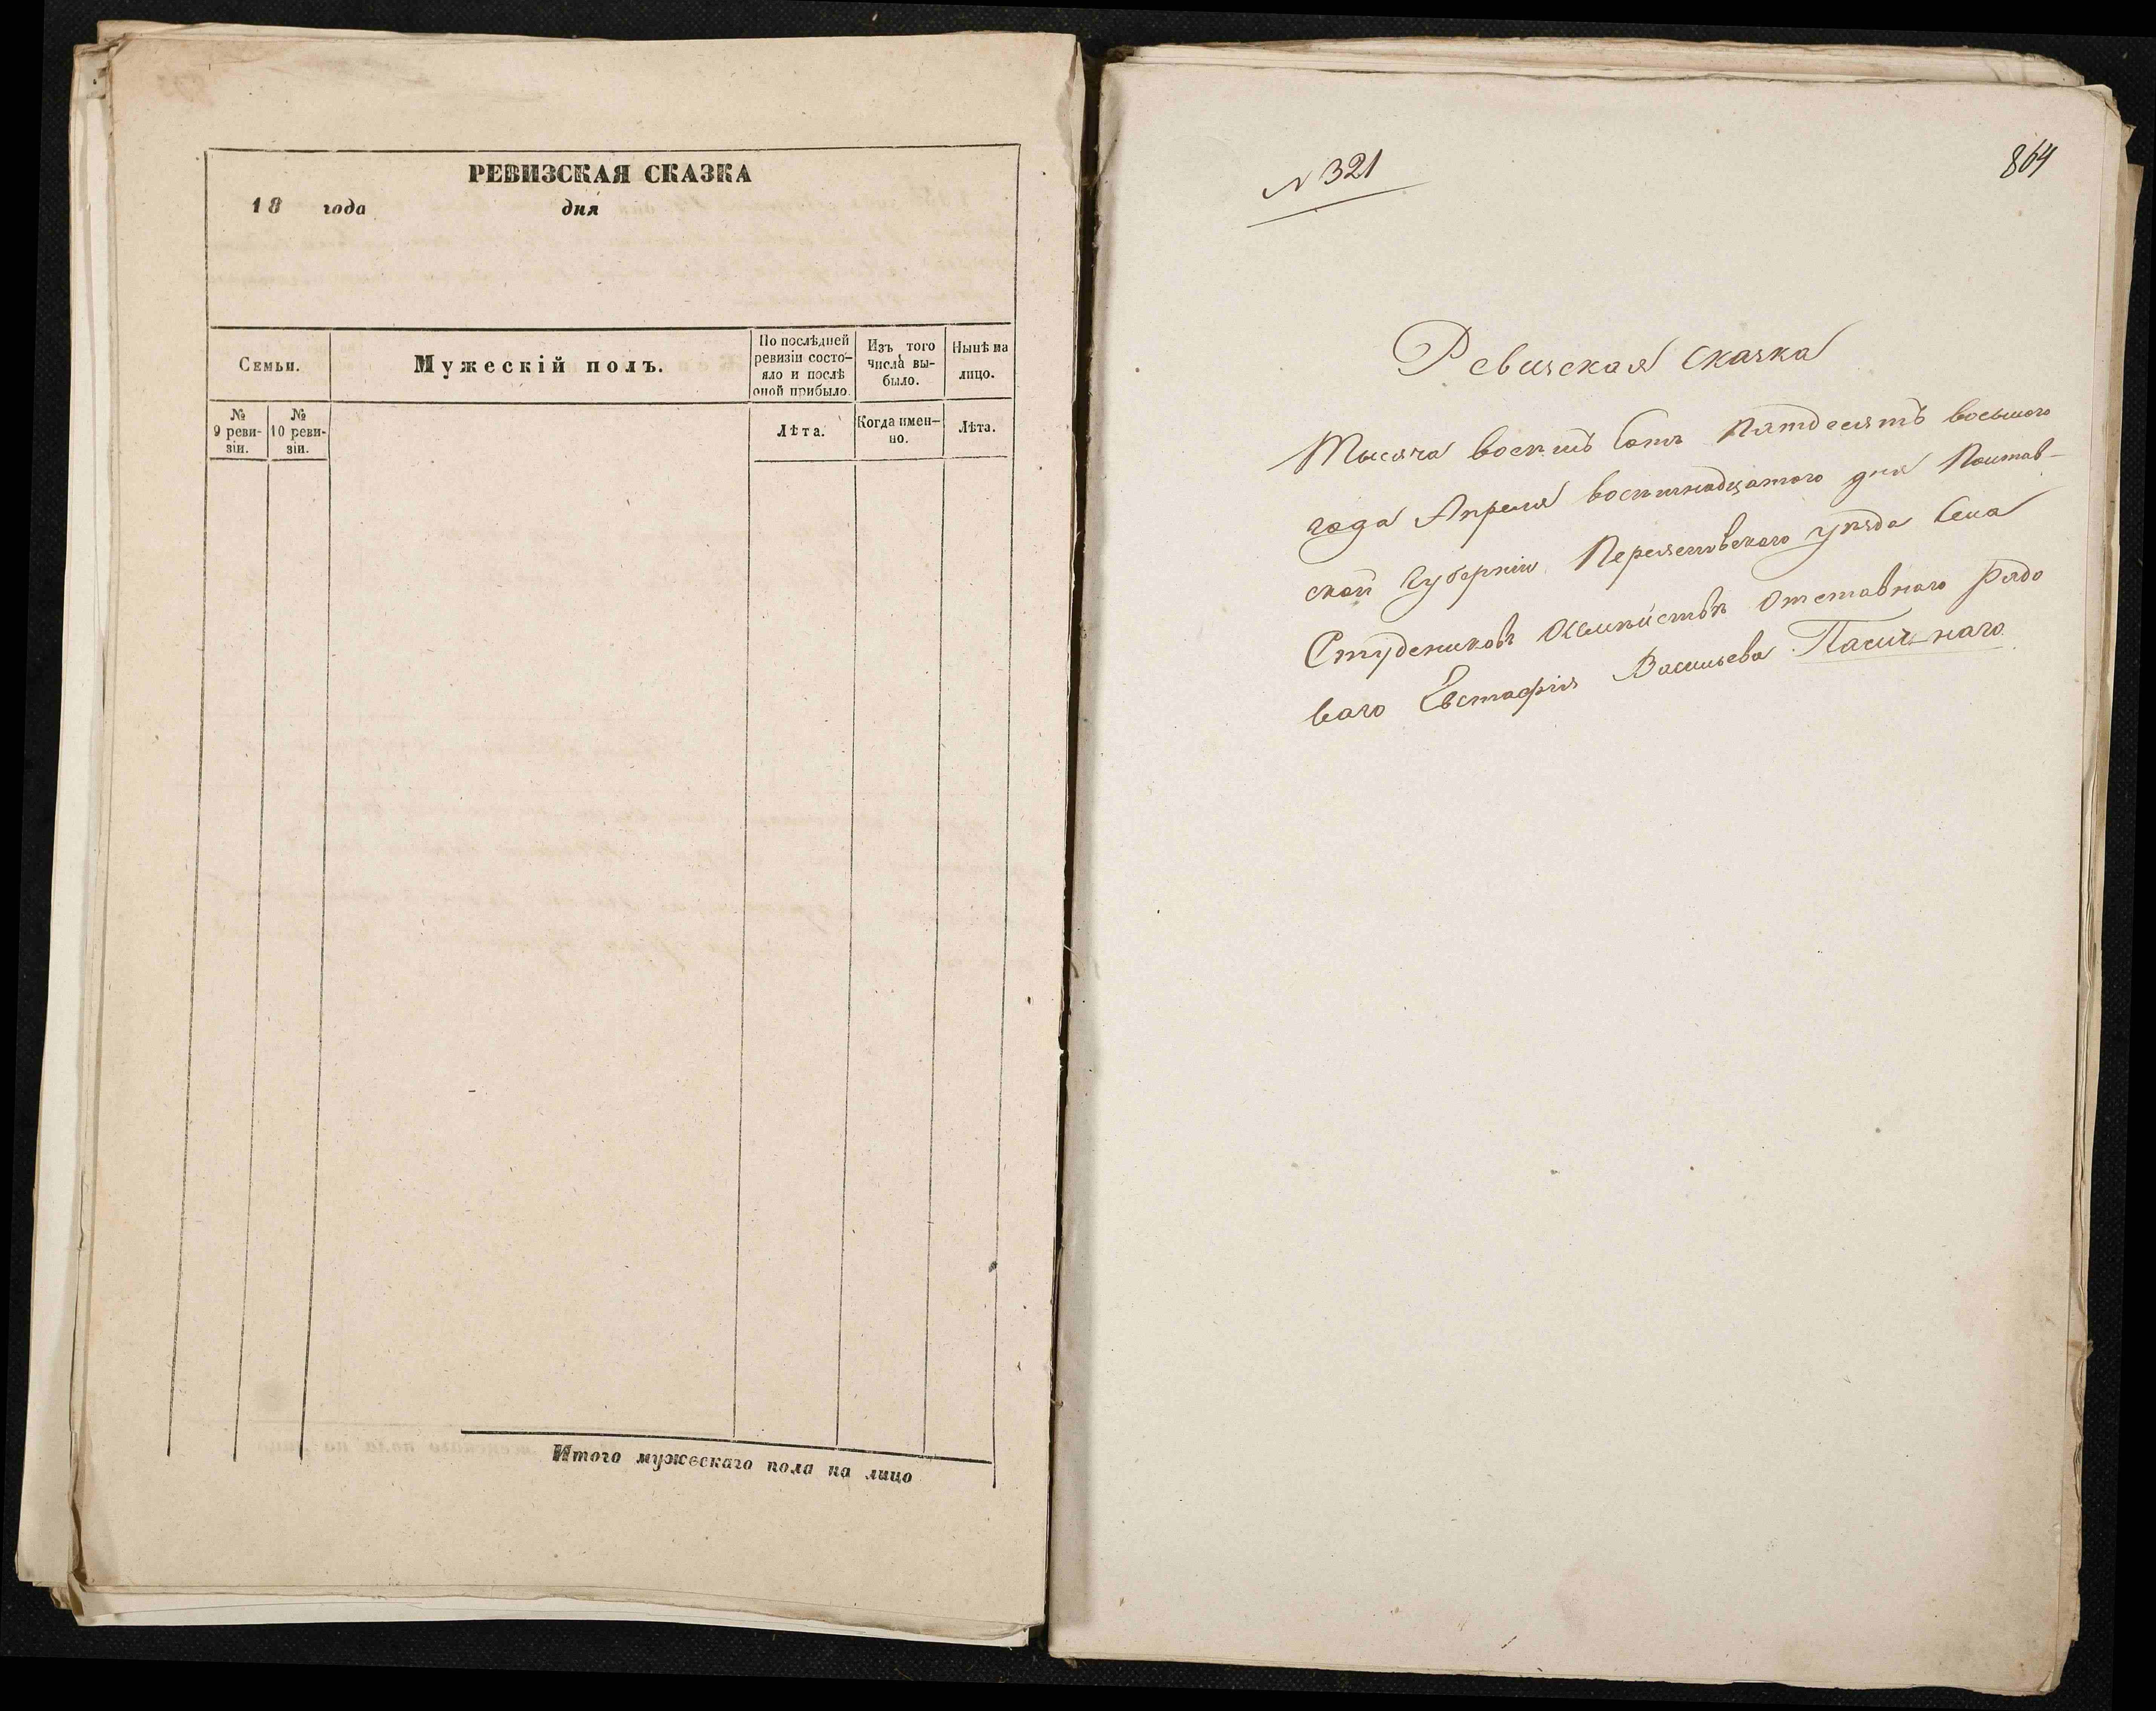 РЕВИЗСКАЯ СКАЗКА
18 года дня
Семьи.
Мужескій полъ.
По послѣдней
ревизіи состо-
яло и послѣ
оной прибыло.
Изъ того
числа вы-
было.
Нынѣ на
лицо.
№
9 реви-
зіи.
№
10 реви-
зіи.
Лѣта.
Когда имен-
но.
Лѣта.
Итого мужескаго пола на лицо
N 321
864
Ревизская сказка
Тысяча восемь сотъ пятдесятъ восьмого
года Апреля восемнадцатого дня Полтав-
ской Губерніи Переяславского уѣзда села
Студениковъ отставнаго рядо
ваго Евстафія Васильева Пасичнаго